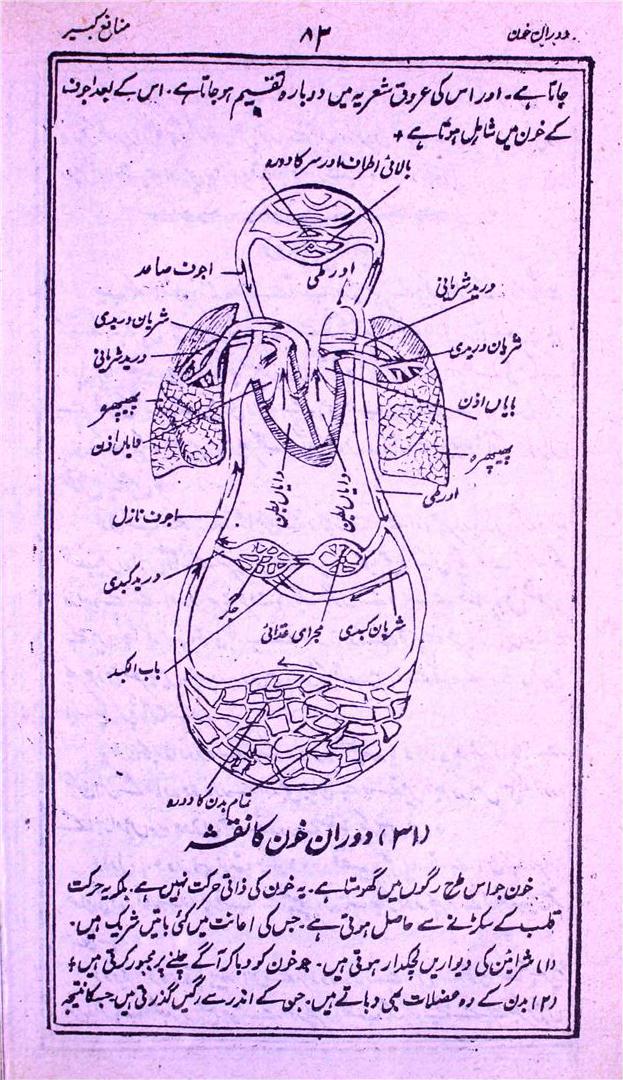 دوران خون
۸۳
منافع کبیر
جاتا ہے۔ اور اس کی عروق شعریہ میں دوبارہ تقسیم ہو جاتا ہے۔ اس کے بعد اجوف
کے خون میں شامل ہوتا ہے +
بالائی اطراف اور سر کا دورہ
اجوف صاعد
اورطی
ورید شریانی
شریان وریدی
شریان وریدی
ورید شریانی
بایاں اذن
پھیپھڑہ
دایاں اذن
پھیپھڑہ
دایاں بطن
دایاں بطن
اورطی
اجوف نازل
ورید کبدی
جگر
مجرای غذائی
شریان کبدی
باب الکبد
تمام بدن کا دورہ
(۳۱) دوران خون کا نقشہ
خون جو اس طرح رگوں میں گھومتا ہے۔ یہ خون کی ذاتی حرکت نہیں ہے۔ بلکہ یہ حرکت
قلب کے سکڑنے سے حاصل ہوتی ہے۔ جس کی اعانت میں کئی باتیں شریک ہیں۔
(۱) شرائین کی دیواریں لچکدار ہوتی ہیں۔ جو خون کو دبا کر آگے چلنے پر مجبور کرتی ہیں +
(۲) بدن کے وہ عضلات بھی دباتے ہیں۔ جن کے اندر سے رگیں گذرتی ہیں جس کا نتیجہ